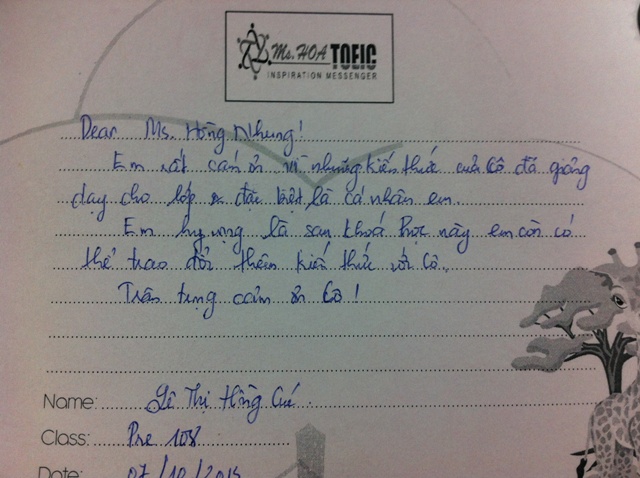 Ms. HOA TOEIC
INSPIRATION MESSENGER
Dear Ms. Hồng Nhung!
Em rất cám ơn vì những kiến thức của Cô đã giảng
dạy cho lớp & đặc biệt là cá nhân em.
Em hy vọng là sau khoá học này em còn có
thể trao đổi thêm kiến thức với Cô.
Trân trọng cám ơn Cô!
Name: Lê Thị Hồng
Class: Pre 108
Date: 07/10/2015